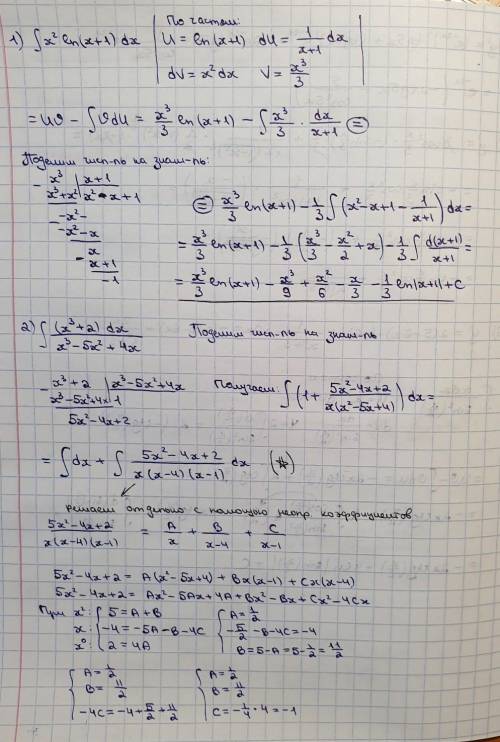 По частям:
1) ∫x² ln(x+1) dx | U = ln(x+1) dU = 1/(x+1) dx
dV = x²dx V = x³/3
= UV - ∫VdU = x³/3 ln(x+1) - ∫x³/3 · dx/(x+1) =
Поделим числ-ль на знам-ль:
- x³ | x+1
x³+x² | x²-x+1
-x²
- -x²-x
x
- x+1
-1
= x³/3 ln(x+1) - 1/3 ∫(x²-x+1 - 1/(x+1)) dx =
= x³/3 ln(x+1) - 1/3 (x³/3 - x²/2 + x) - 1/3 ∫ d(x+1)/(x+1) =
= x³/3 ln(x+1) - x³/9 + x²/6 - x/3 - 1/3 ln|x+1| + C
2) ∫ (x³+2) dx / (x³-5x²+4x) Поделим числ-ль на знам-ль
- x³+2 | x³-5x²+4x
x³-5x²+4x | 1
5x²-4x+2
Получаем: ∫(1 + (5x²-4x+2)/(x(x²-5x+4))) dx =
= ∫dx + ∫ (5x²-4x+2)/(x(x-4)(x-1)) dx (*)
решаем отдельно с помощью неопр. коэффициентов
(5x²-4x+2)/(x(x-4)(x-1)) = A/x + B/(x-4) + C/(x-1)
5x²-4x+2 = A(x²-5x+4) + Bx(x-1) + Cx(x-4)
5x²-4x+2 = Ax²-5Ax+4A+Bx²-Bx+Cx²-4Cx
При x²: { 5 = A+B { A = 1/2
x: { -4 = -5A-B-4C { -5/2 -B-4C = -4
x⁰: { 2 = 4A { B = 5-A = 5-1/2 = 11/2
{ A = 1/2 { A = 1/2
{ B = 11/2 { B = 11/2
{ -4C = -4+5/2+11/2 { C = -1/4 · 4 = -1